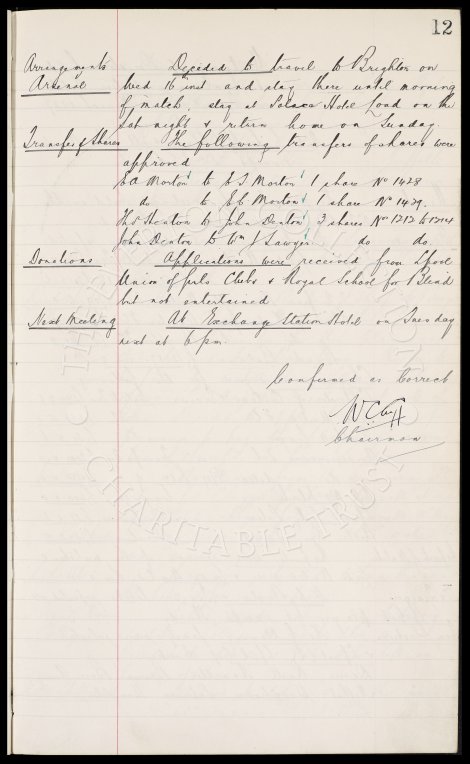 12
Arrangements Decided to travel to Brighton on
Arsenal Wed 16 inst and stay there until morning
of match, stay at Hotel Lond on the
Sat night & return home on Sunday
Transfer of Shares The following transfers of shares were
approved
E A Morton to E J Morton 1 share No 1428
do to E C Morton 1 share No 1429.
Thos Heaton to John Denton 3 shares No 1212 to 1214
John Denton to Wm J Sawyer do do
Donations Applications were received from Lpool
Union of Girls Clubs & Royal School for Blind
but not entertained
Next Meeting At Exchange Station Hotel on Tuesday
next at 6 pm.
Confirmed as Correct
W C Cuff
Chairman
THE EVERTON COLLECTION
CHARITABLE TRUST